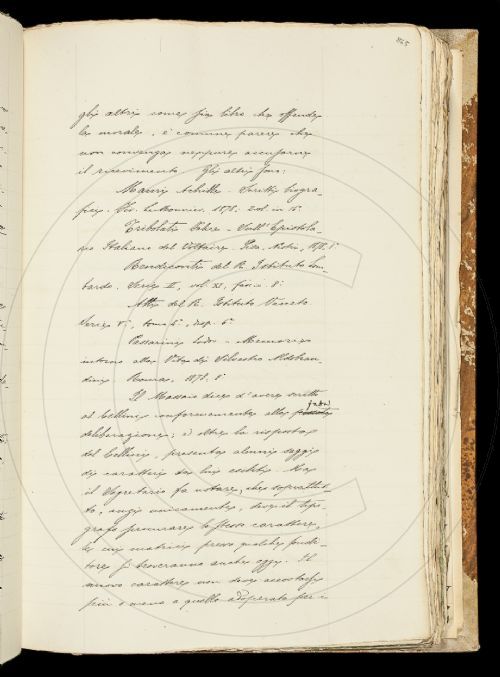 gli altri come fra libro che offende
la morale, è comune parere che
non convenga neppure accusarne
il ricevimento. Gli altri sono:
Mauri Achille - Scritti biogra-
fici. Fir. Le Monnier, 1878. 2 vol. in 16°
Tribolati Felice - Sull'Epistola-
rio Italiano del Voltaire. Pisa, Nistri, 1878. 8°
Rendiconti del R. Istituto Lom-
bardo. Serie II, vol. XI, fasc. 8°
Atti del R. Istituto Veneto
Serie V, tomo 4°, disp. 6°
Passarini Lodo. - Memorie
intorno alla Vita di Silvestro Aldobran-
dini. Roma, 1878. 8°
Il Massaio dice d'avere scritto
al Cellini conformemente alla
deliberazione; ed oltre la risposta
del Cellini, presenta alcuni saggi
di caratteri da lui esibiti. Ma
il Segretario fa notare, che soprattut-
to, anzi unicamente, deve il tipo-
grafo procurare lo stesso carattere,
le cui matrici presso qualche fondi-
tore si troveranno anche oggi. Il
nuovo carattere non deve accostarsi
più o meno a quello adoperato per